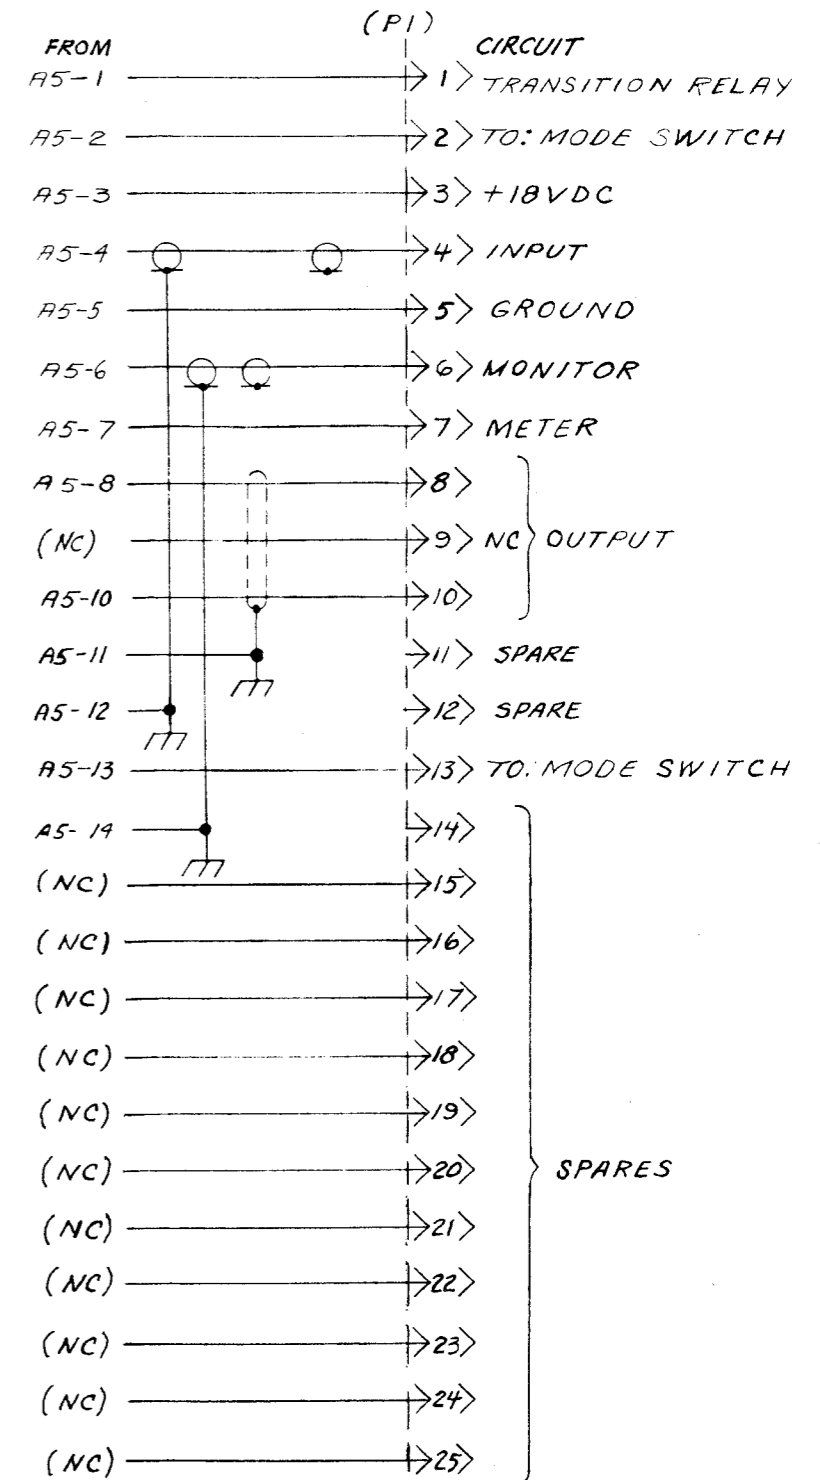 (P1)
FROM CIRCUIT
A5-1 1 TRANSITION RELAY
A5-2 2 TO: MODE SWITCH
A5-3 3 +18VDC
A5-4 4 INPUT
A5-5 5 GROUND
A5-6 6 MONITOR
A5-7 7 METER
A5-8 8
(NC) 9 NC OUTPUT
A5-10 10
A5-11 11 SPARE
A5-12 12 SPARE
A5-13 13 TO: MODE SWITCH
A5-14 14
(NC) 15
(NC) 16
(NC) 17
(NC) 18
(NC) 19
(NC) 20 SPARES
(NC) 21
(NC) 22
(NC) 23
(NC) 24
(NC) 25